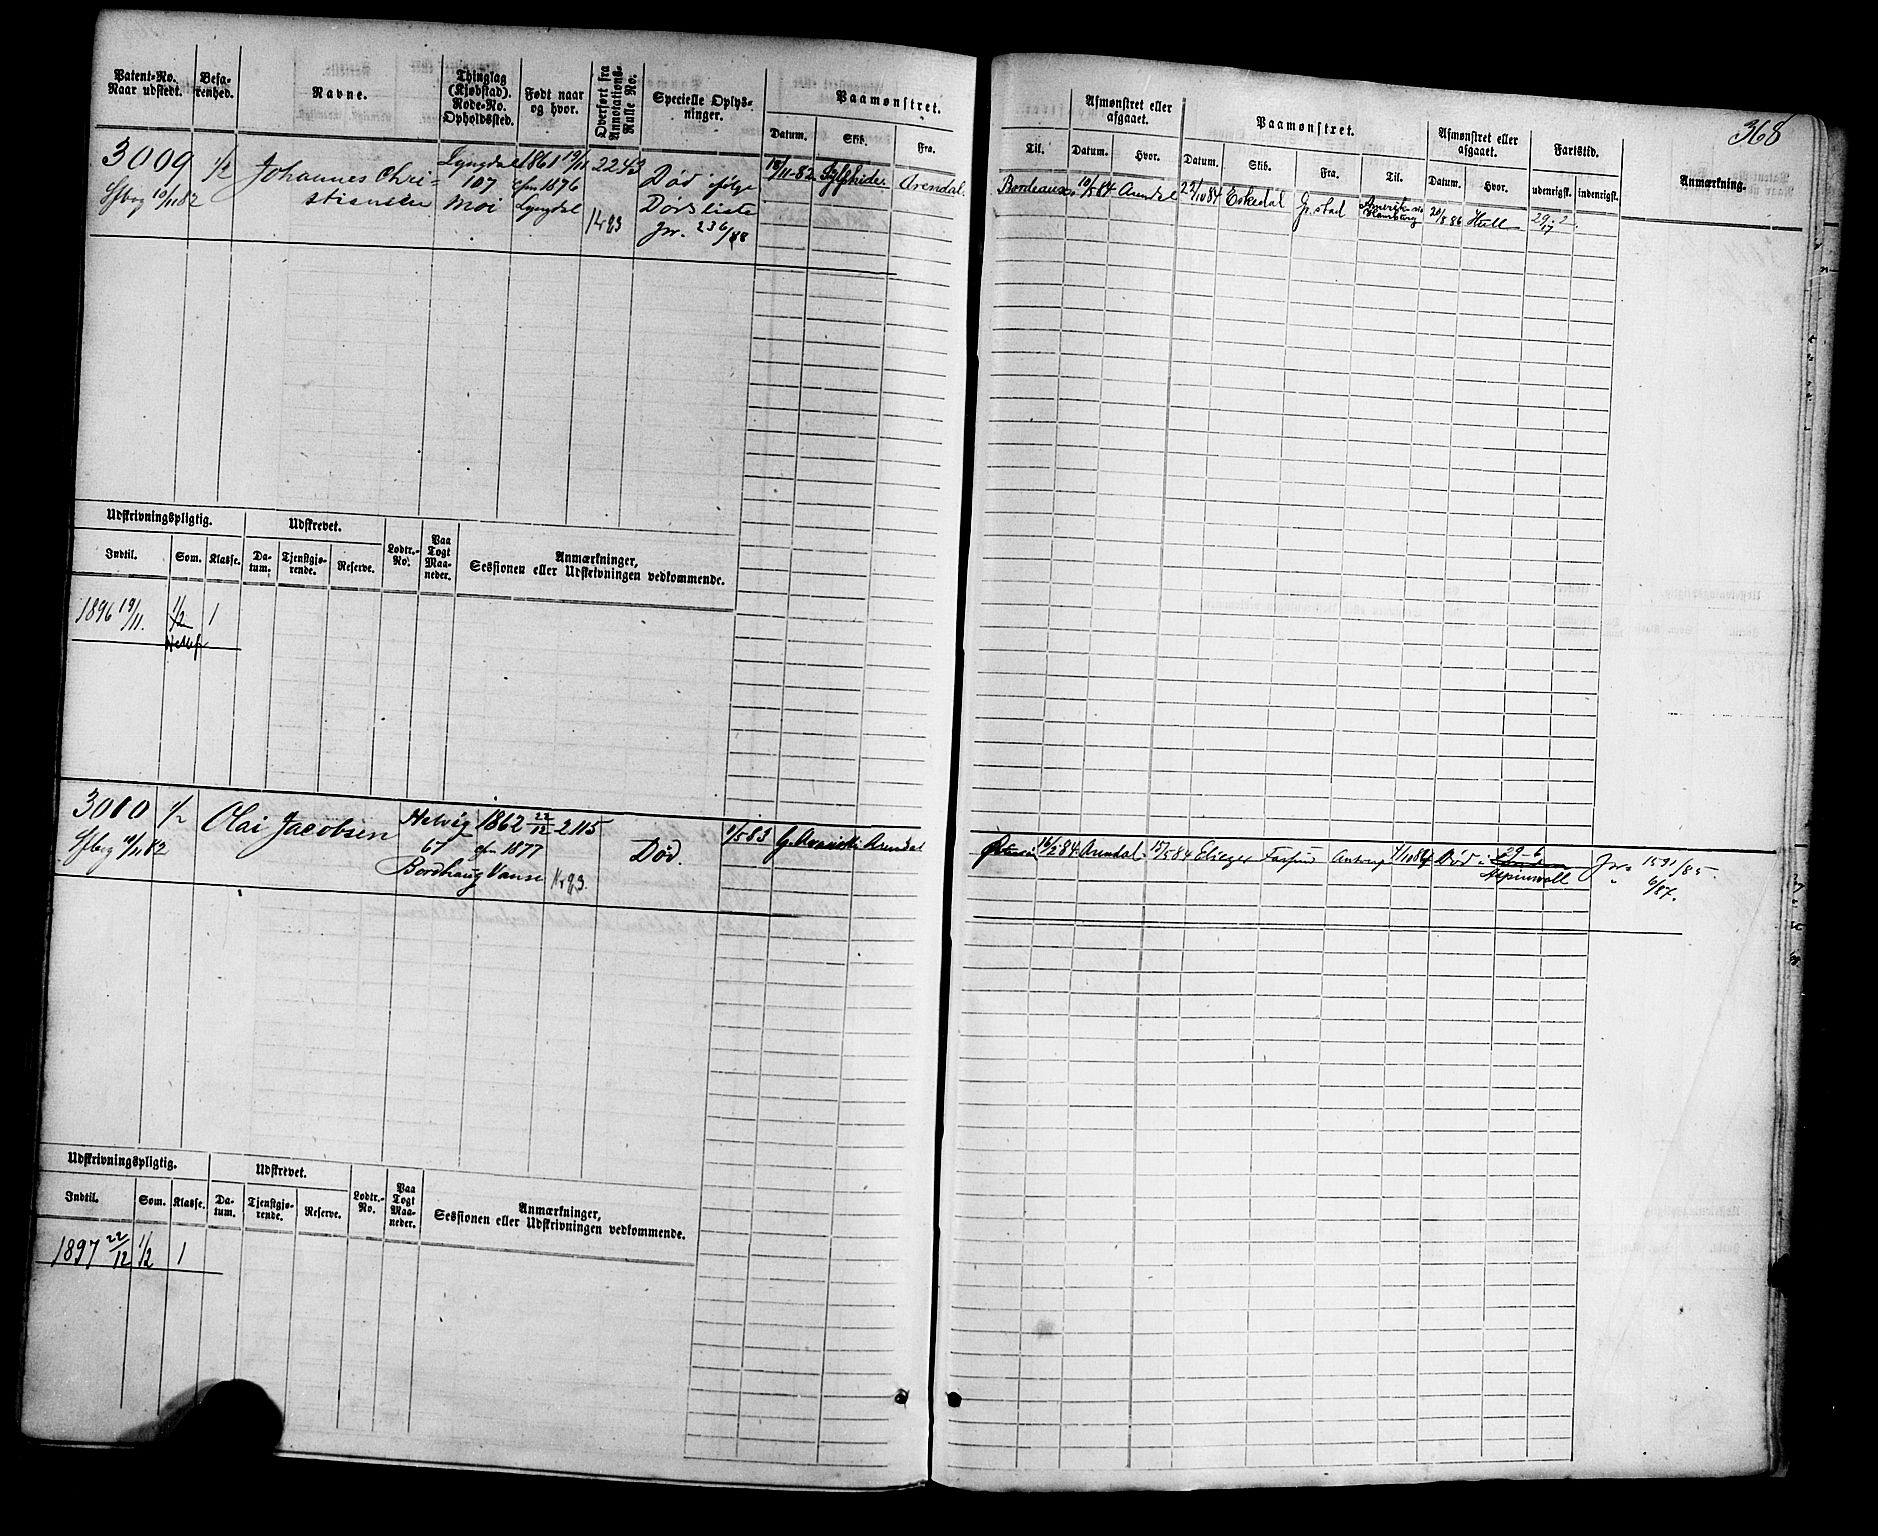 368
Patent-No. Naar udstedt.
Befarenhed.
Navne.
Thinglag (Kjøbsted). Rode-No. Opholdssted.
Født naar og hvor.
Overført fra Annotations-Rulle No.
Specielle Oplysninger.
Paamønstret.
Datum. Skib. Fra.
Til.
Afmønstret eller afgaaet.
Datum. Hvor.
Paamønstret.
Datum. Skib. Fra. Til.
Afmønstret eller afgaaet.
Datum. Hvor.
Fartstid.
udenrigsk. indenrigsk.
Anmærkning.
3009 1/2 Johannes Chri- Lyngdal 1861 19/11 2243 Død ifølge 18/11-82 Arendal Bordeaux 10/5 84 Arendal 22/10 84 Eskedal Gr.stad Amerik. via 20/8 86 Hull
10/11 82 stiansen 107 1876 Dødsliste Hamburg
Moi Lyngdal Krgs Jnr. 236/88
Udskrivningspligtig.
Indtil. Som. Klasse.
Udskrevet.
Datum. Tjenstgjørende. Reserve.
Lodtr.-No.
Paa Togt Maaneder.
Anmærkninger,
Sessionen eller Udskrivningen vedkommende.
1896 19/11. 1/2 1
3010 1/2 Olai Jacobsen Helvig 1862 22/12 2115 Død. 1/5 83 Arendal 16/2 84 Arendal 15/5 84 Eliezer Farsund Antwerp Død i
11/11 82 67 1877 Aspinwall Jnr. 1591/85.
Bordhaug Vanse Krgs. " 6/87.
Udskrivningspligtig.
Indtil. Som. Klasse.
Udskrevet.
Datum. Tjenstgjørende. Reserve.
Lodtr.-No.
Paa Togt Maaneder.
Anmærkninger,
Sessionen eller Udskrivningen vedkommende.
1897 22/12 1/2 1